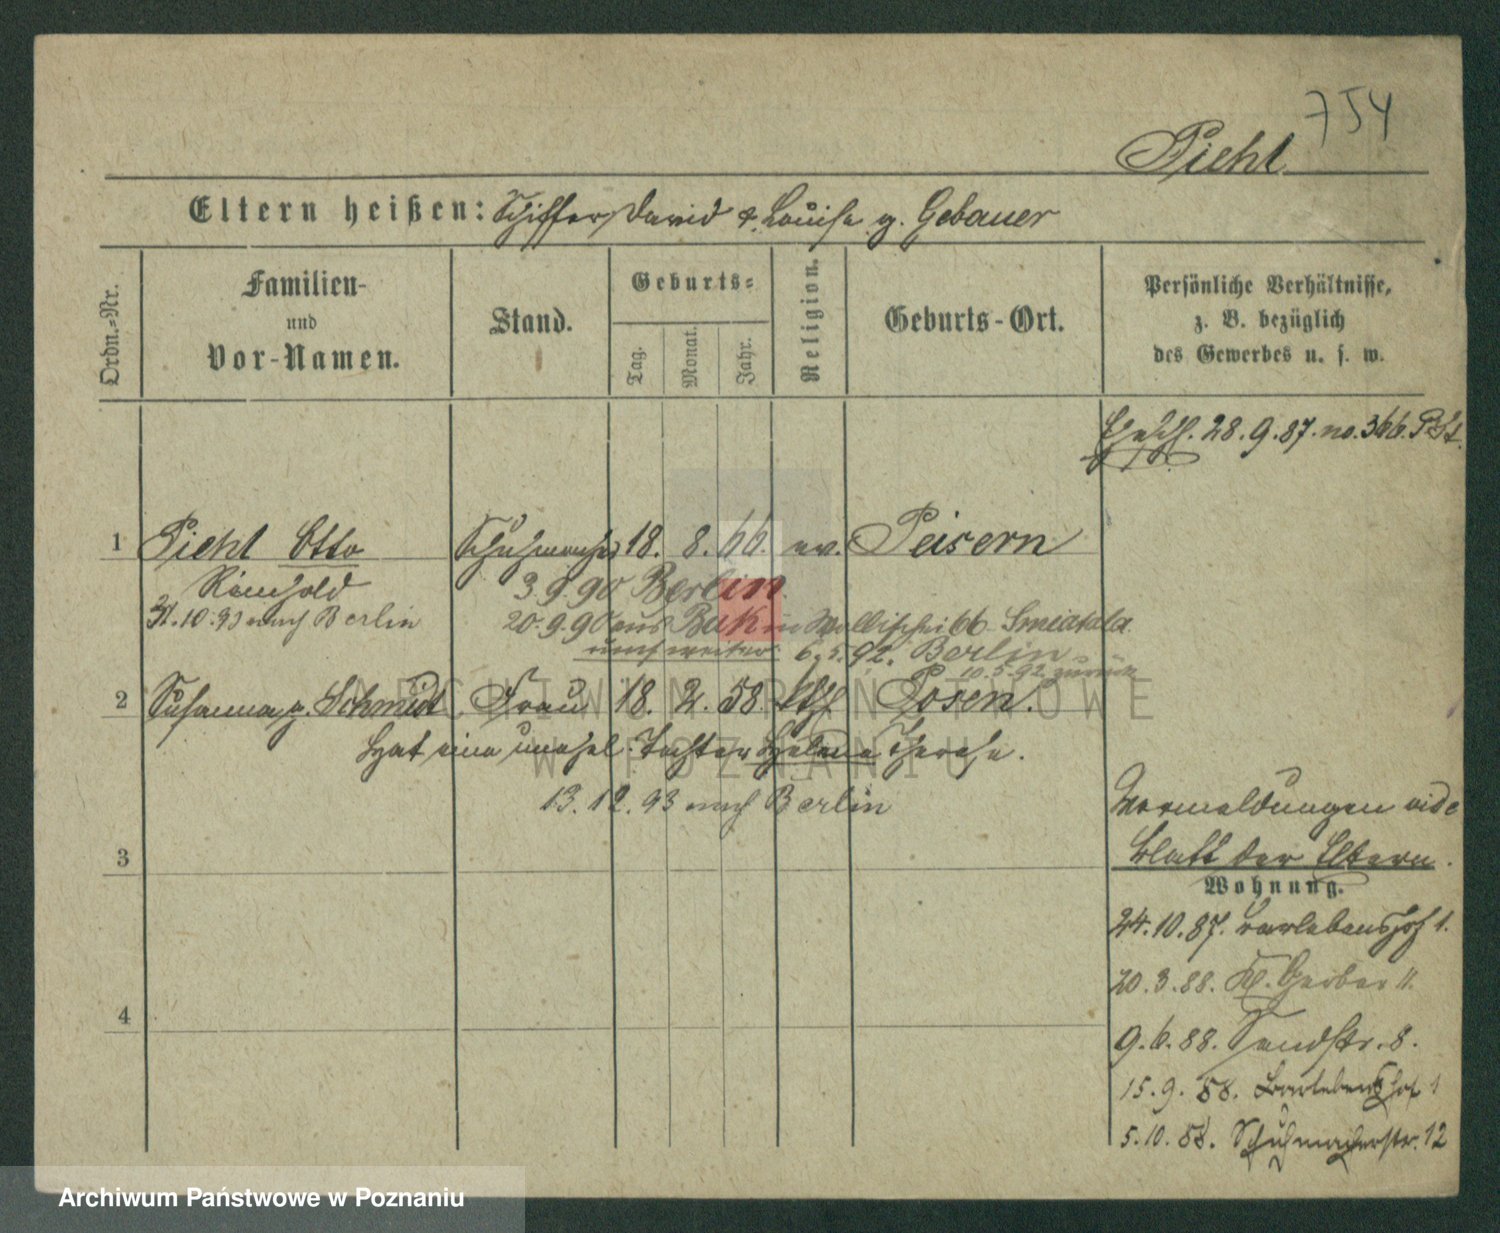 754
Piehl
Eltern heißen: Schiffer David & Louise g. Gebauer
Ordn.=Nr.
Familien-
und
Vor-Namen.
Stand.
Geburts=
Tag.
Monat.
Jahr.
Religion.
Geburts-Ort.
Persönliche Verhältnisse,
z. B. bezüglich
des Gewerbes u. s. w.
28.9.87. no. 366.
1 Piehl Otto Schuhmacher 18. 8. 66. ev. Peisern
Reinhold 3.9.90 Berlin.
31.10.93 nach Berlin 20.9.90 aus Buk in Wallischei 66 Smiatala
6.5.92. Berlin
10.5.92 zurück
2 Susanna g. Schmidt. Frau 18. 2. 58. kth Posen.
Hat eine unehel. Tochter Helene Therese.
13.12.93 nach Berlin
Vormeldungen vide
Blatt der Eltern.
3
Wohnung.
24.10.87. Barlebenshof 1.
20.3.88. Kl. Gerber 11.
4
9.6.88. Sandstr. 8.
15.9.88. Barlebenshof 1
5.10.88. Schuhmacherstr. 12
ARCHIWUM PAŃSTWOWE
W POZNANIU
Archiwum Państwowe w Poznaniu